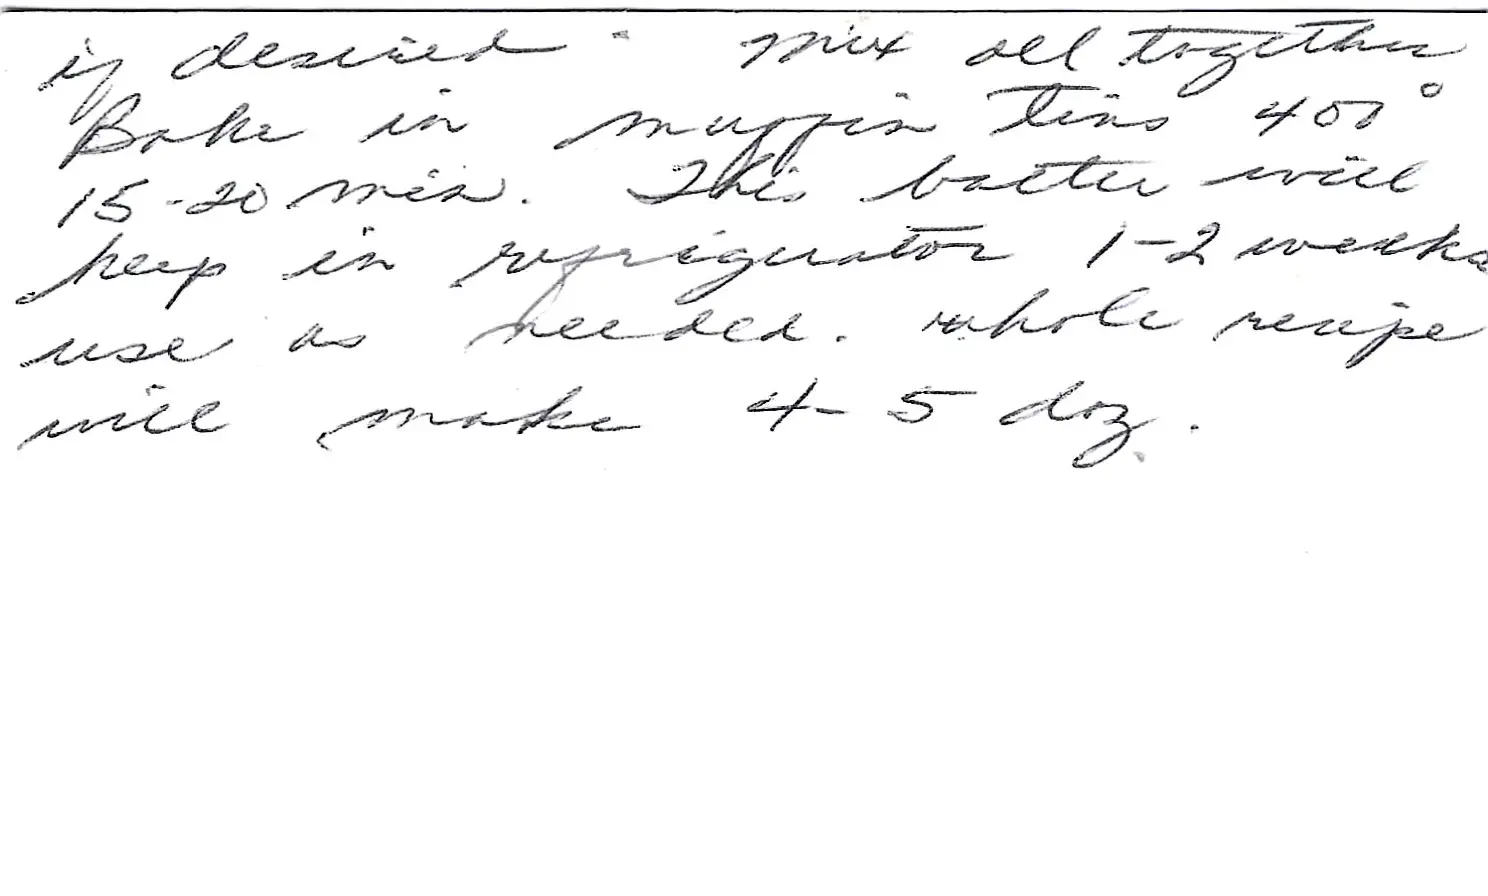 if desired - Mix all together
Bake in muffin tins 400°
15-20 min. This batter will
keep in refrigerator 1-2 weeks
use as needed. whole recipe
will make 4-5 doz.